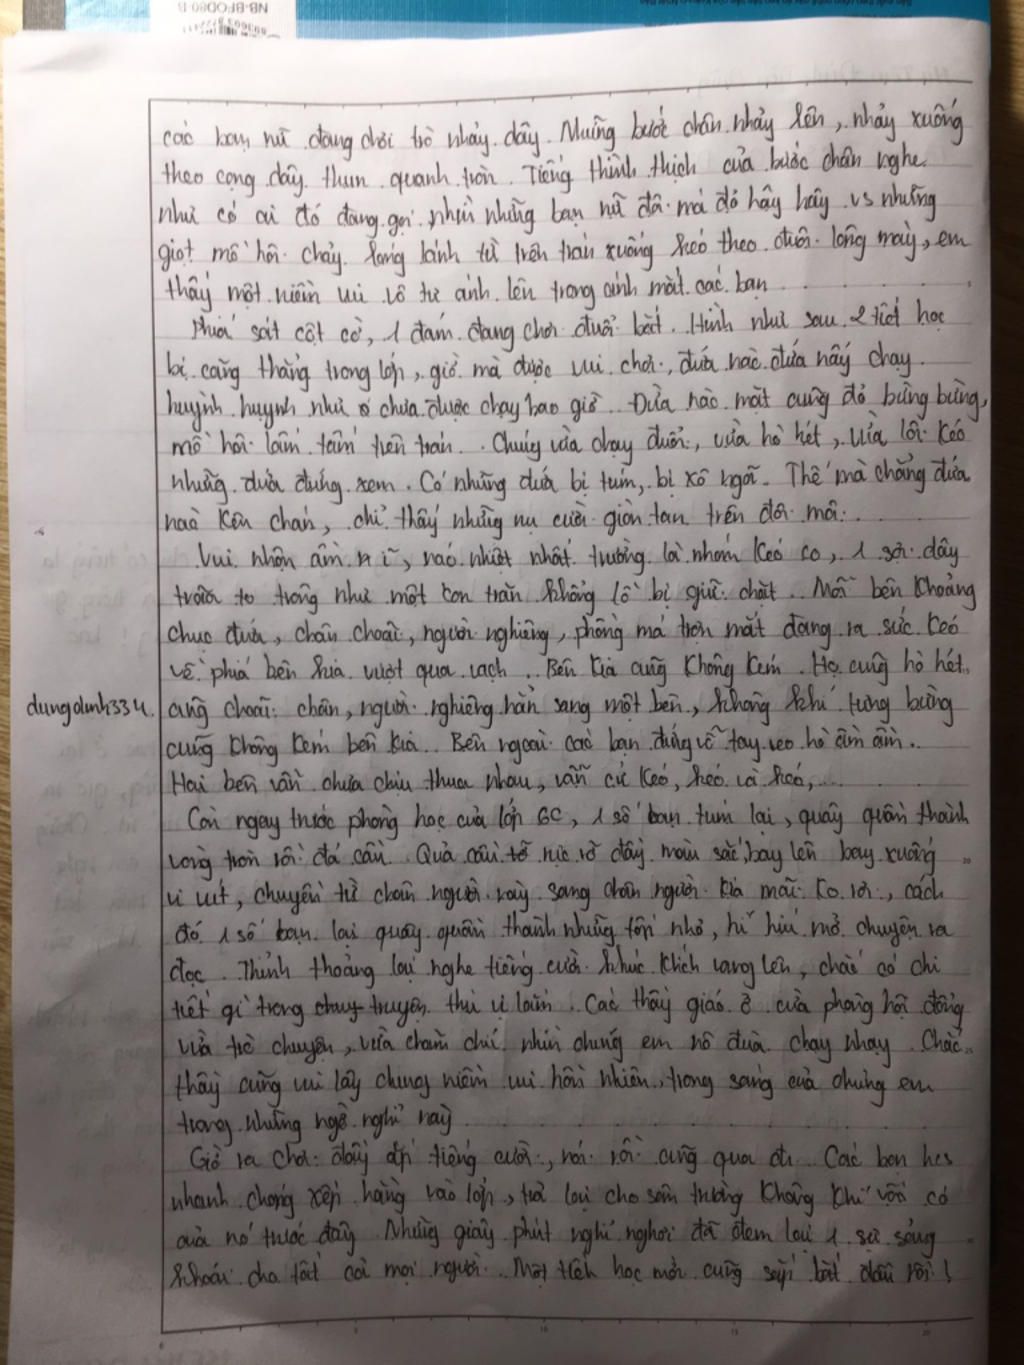 NB-BFOD80-B
các bạn nữ đang chơi trò nhảy dây. Những bước chân nhảy lên, nhảy xuống
theo cọng dây thun quanh tròn. Tiếng thình thịch của bước chân nghe
như có ai đó đang gọi, nhìn những bạn nữ đôi má đỏ hây hây vs những
giọt mồ hôi chảy long lánh từ trên trán xuống kéo theo đuôi lông mày, em
thấy một niềm vui vô tư ánh lên trong ánh mắt các bạn
Phía sát cột cờ, 1 đám đang chơi đuổi bắt. Hình như sau 2 tiết học
bị căng thẳng trong lớp, giờ mà được vui chơi, đứa nào đứa nấy chạy
huỳnh huỵnh như chưa được chạy bao giờ. Đứa nào mặt cũng đỏ bừng bừng,
mồ hôi lấm tấm trên trán. Chúng vừa chạy đuổi, vừa hò hét, vừa lôi kéo
những đứa đứng xem. Có những đứa bị túm, bị xô ngã. Thế mà chẳng đứa
nào kêu chán, chỉ thấy những nụ cười giòn tan trên đôi môi.
Vui nhộn ầm ĩ, náo nhiệt nhất trường là nhóm kéo co, 1 sợi dây
to trông như một con trăn khổng lồ bị giữ chặt. Mỗi bên khoảng
chục đứa, chân choãi, người nghiêng, phồng má trợn mắt đang ra sức kéo
về phía bên kia vượt qua vạch. Bên kia cũng không kém. Họ cũng hò hét,
dungdinh334. cũng choãi chân, người nghiêng hẳn sang một bên, không khí tưng bừng
cũng không kém bên kia. Bên ngoài các bạn đứng vỗ tay reo hò ầm ầm..
Hai bên vẫn chưa chịu thua nhau, vẫn cứ kéo, kéo và kéo,...
Còn ngay trước phòng học của lớp 6C, 1 số bạn tụm lại, quây quần thành
vòng tròn rồi đá cầu. Quả cầu rực rỡ đầy màu sắc, bay lên bay xuống
vi vút, chuyền từ chân người này sang chân người kia mãi ko rơi, cách
đó 1 số bạn lại quây quần thành những tốp nhỏ, hí húi mở chuyện ra
đọc. Thỉnh thoảng lại nghe tiếng cười khúc khích vang lên, chắc có chi
tiết gì trong truyện thú vị lắm. Các thầy giáo ở cửa phòng hội đồng
vừa trò chuyện, vừa chăm chú nhìn chúng em nô đùa chạy nhảy. Chắc
thầy cũng vui lây chung niềm vui hồn nhiên, trong sáng của chúng em
trong những ngày nghỉ này
Giờ ra chơi đầy ắp tiếng cười, nói rồi cũng qua đi. Các bạn hcs
nhanh chóng xếp hàng vào lớp, trả lại cho sân trường không khí vốn có
của nó trước đây. Những giây phút nghỉ ngơi đã đem lại 1 sự sảng
khoái cho tất cả mọi người. Một tiết học mới cũng sắp bắt đầu rồi!